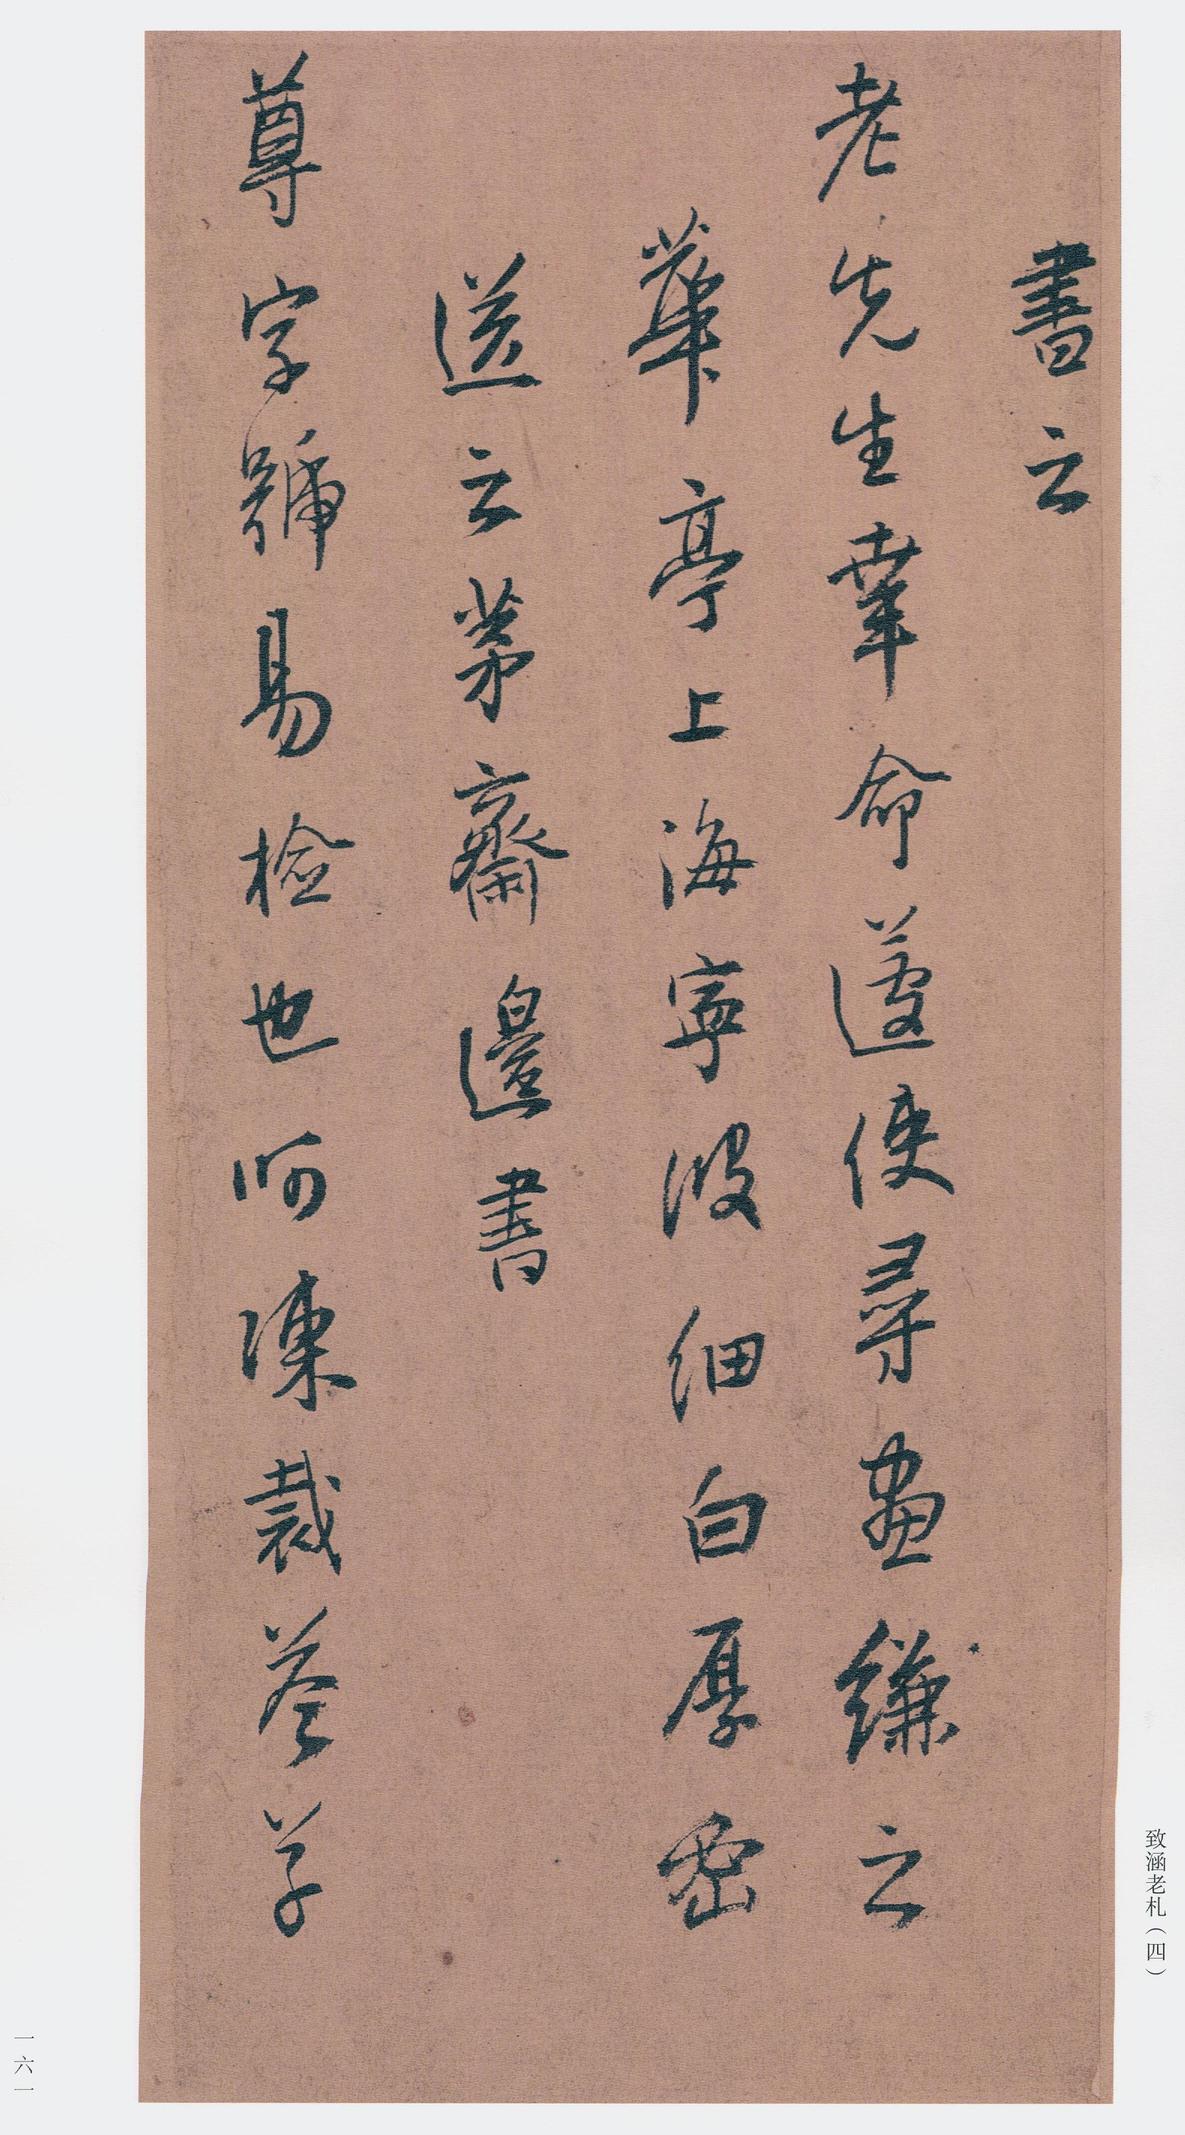 書云
老先生幸命遣使尋畫縑之
華亭上海寧波細白厚密
送云茅齋邊書
尊字號易檢也呵凍裁答草
致涵老札（四）
一六一